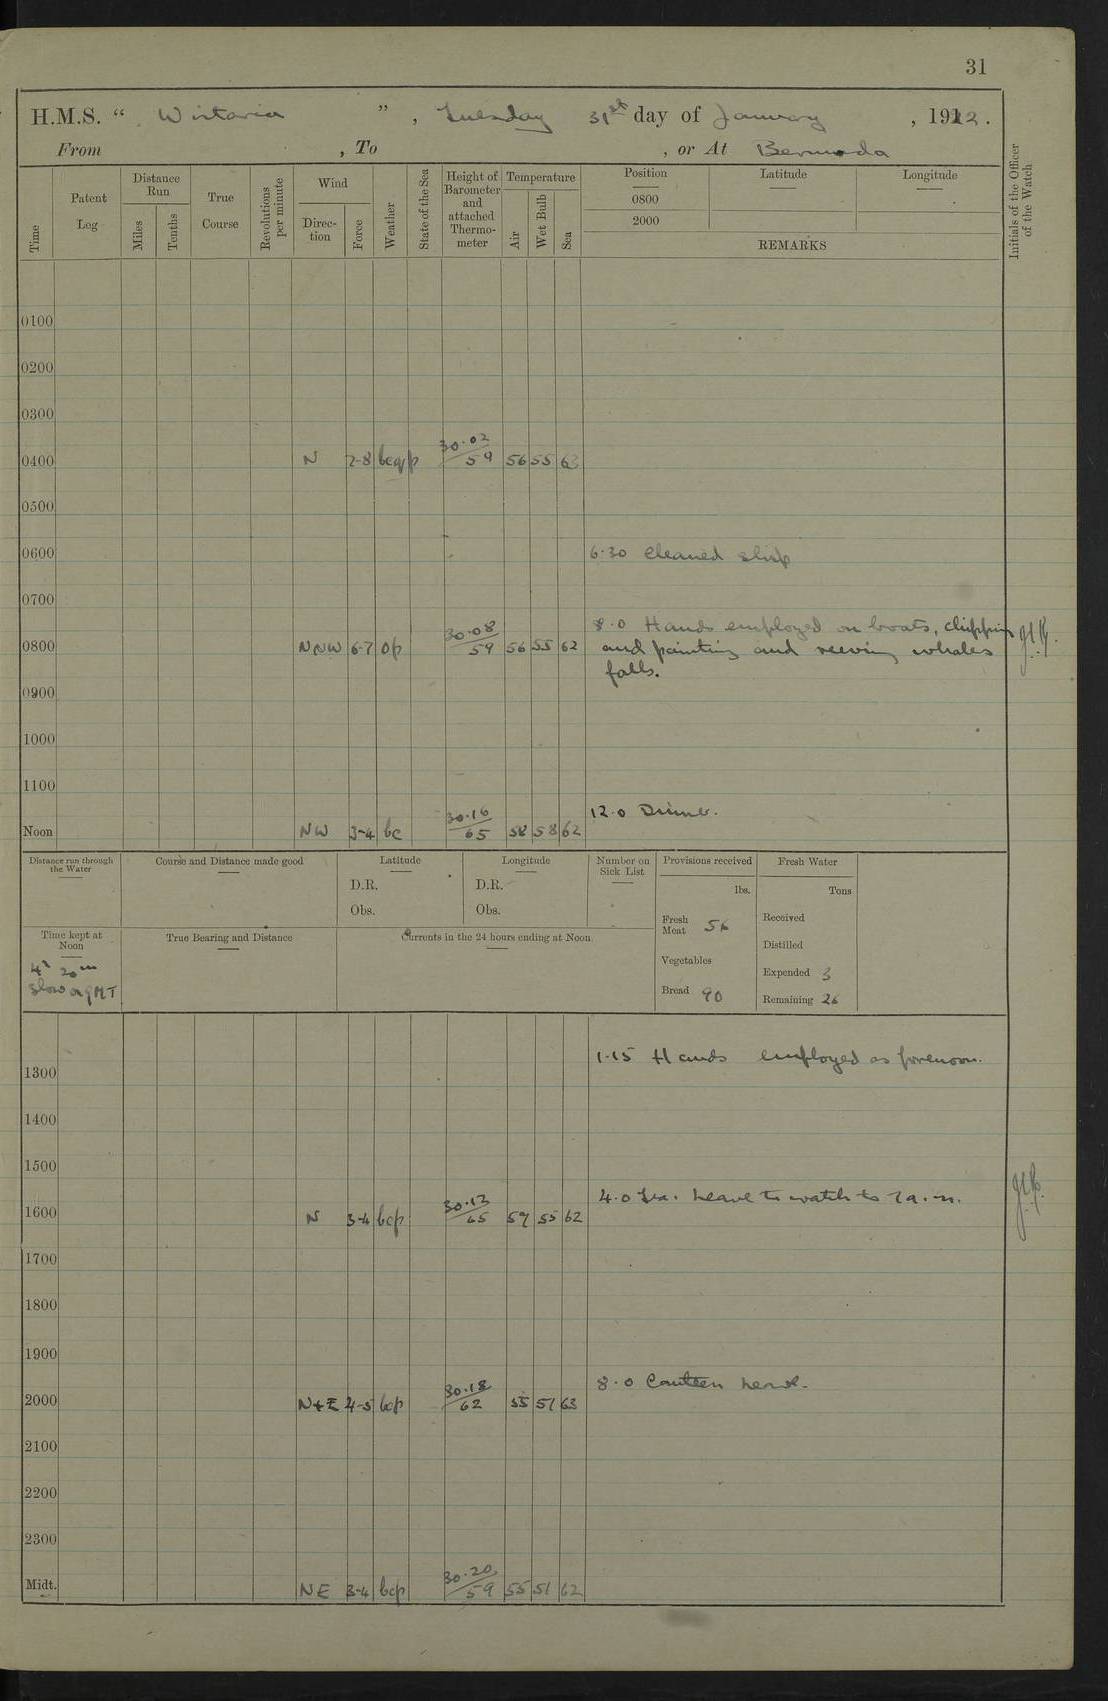 31
H.M.S. “ Wistaria ” , Tuesday 31st day of January , 1922 .
From , To , or At Bermuda
Time
Patent Log
Distance Run
Miles
Tenths
True Course
Revolutions per minute
Wind
Direc-tion
Force
Weather
State of the Sea
Height of Barometer and attached Thermo-meter
Temperature
Air
Wet Bulb
Sea
Position
0800
2000
Latitude
Longitude
REMARKS
Initials of the Officer of the Watch
0100
0200
0300
0400 N 7-8 bcqp 30.02 / 59 56 55 63
0500
0600 6.30 Cleaned ship
0700
8.0 Hands employed on boats, chipping
0800 NNW 6-7 op 30.08 / 59 56 55 62 and painting and reeving whalers
falls.
0900
1000
1100
12.0 Dinner.
Noon NW 3-4 bc 30.16 / 65 58 62
Distance run through the Water
Course and Distance made good
Latitude
D.R.
Obs.
Longitude
D.R.
Obs.
Number on Sick List
Provisions received
lbs.
Fresh Meat 56
Vegetables
Bread 90
Fresh Water
Tons
Received
Distilled
Expended 3
Remaining 26
Time kept at Noon
4h 20m
slow on GMT
True Bearing and Distance
Currents in the 24 hours ending at Noon.
1.15 Hands employed as forenoon.
1300
1400
1500
4.0 Leave to watch to 7 a.m.
1600 N 3-4 bcp 30.13 / 65 59 55 62
1700
1800
1900
8.0 Canteen leave.
2000 N+E 4-5 bcp 30.18 / 62 55 51 63
2100
2200
2300
Midt. NE 3-4 bcp 30.20 / 59 55 51 62